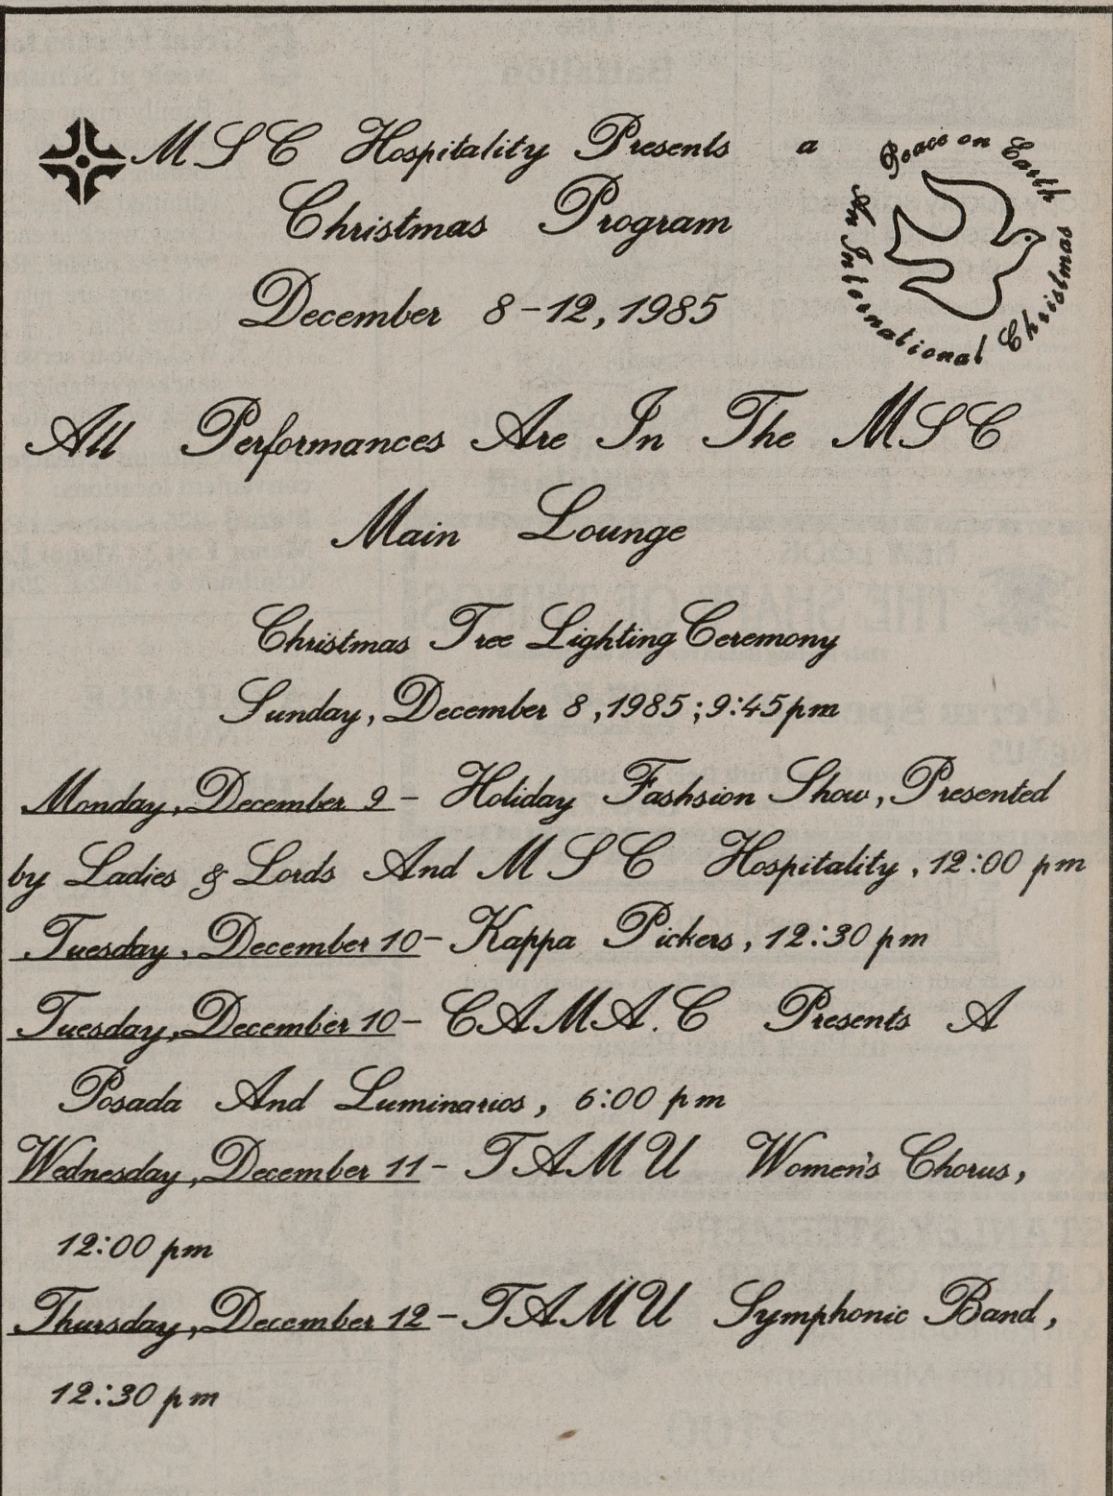 MSC Hospitality Presents a
Christmas Program
December 8-12, 1985
Peace on Earth
An International Christmas
All Performances Are In The MSC
Main Lounge
Christmas Tree Lighting Ceremony
Sunday, December 8, 1985; 9:45 pm
Monday, December 9 - Holiday Fashsion Show, Presented
by Ladies & Lords And MSC Hospitality, 12:00 pm
Tuesday, December 10 - Kappa Pickers, 12:30 pm
Tuesday, December 10 - CAMA.C Presents A
Posada And Luminarios, 6:00 pm
Wednesday, December 11 - TAMU Women's Chorus,
12:00 pm
Thursday, December 12 - TAMU Symphonic Band,
12:30 pm